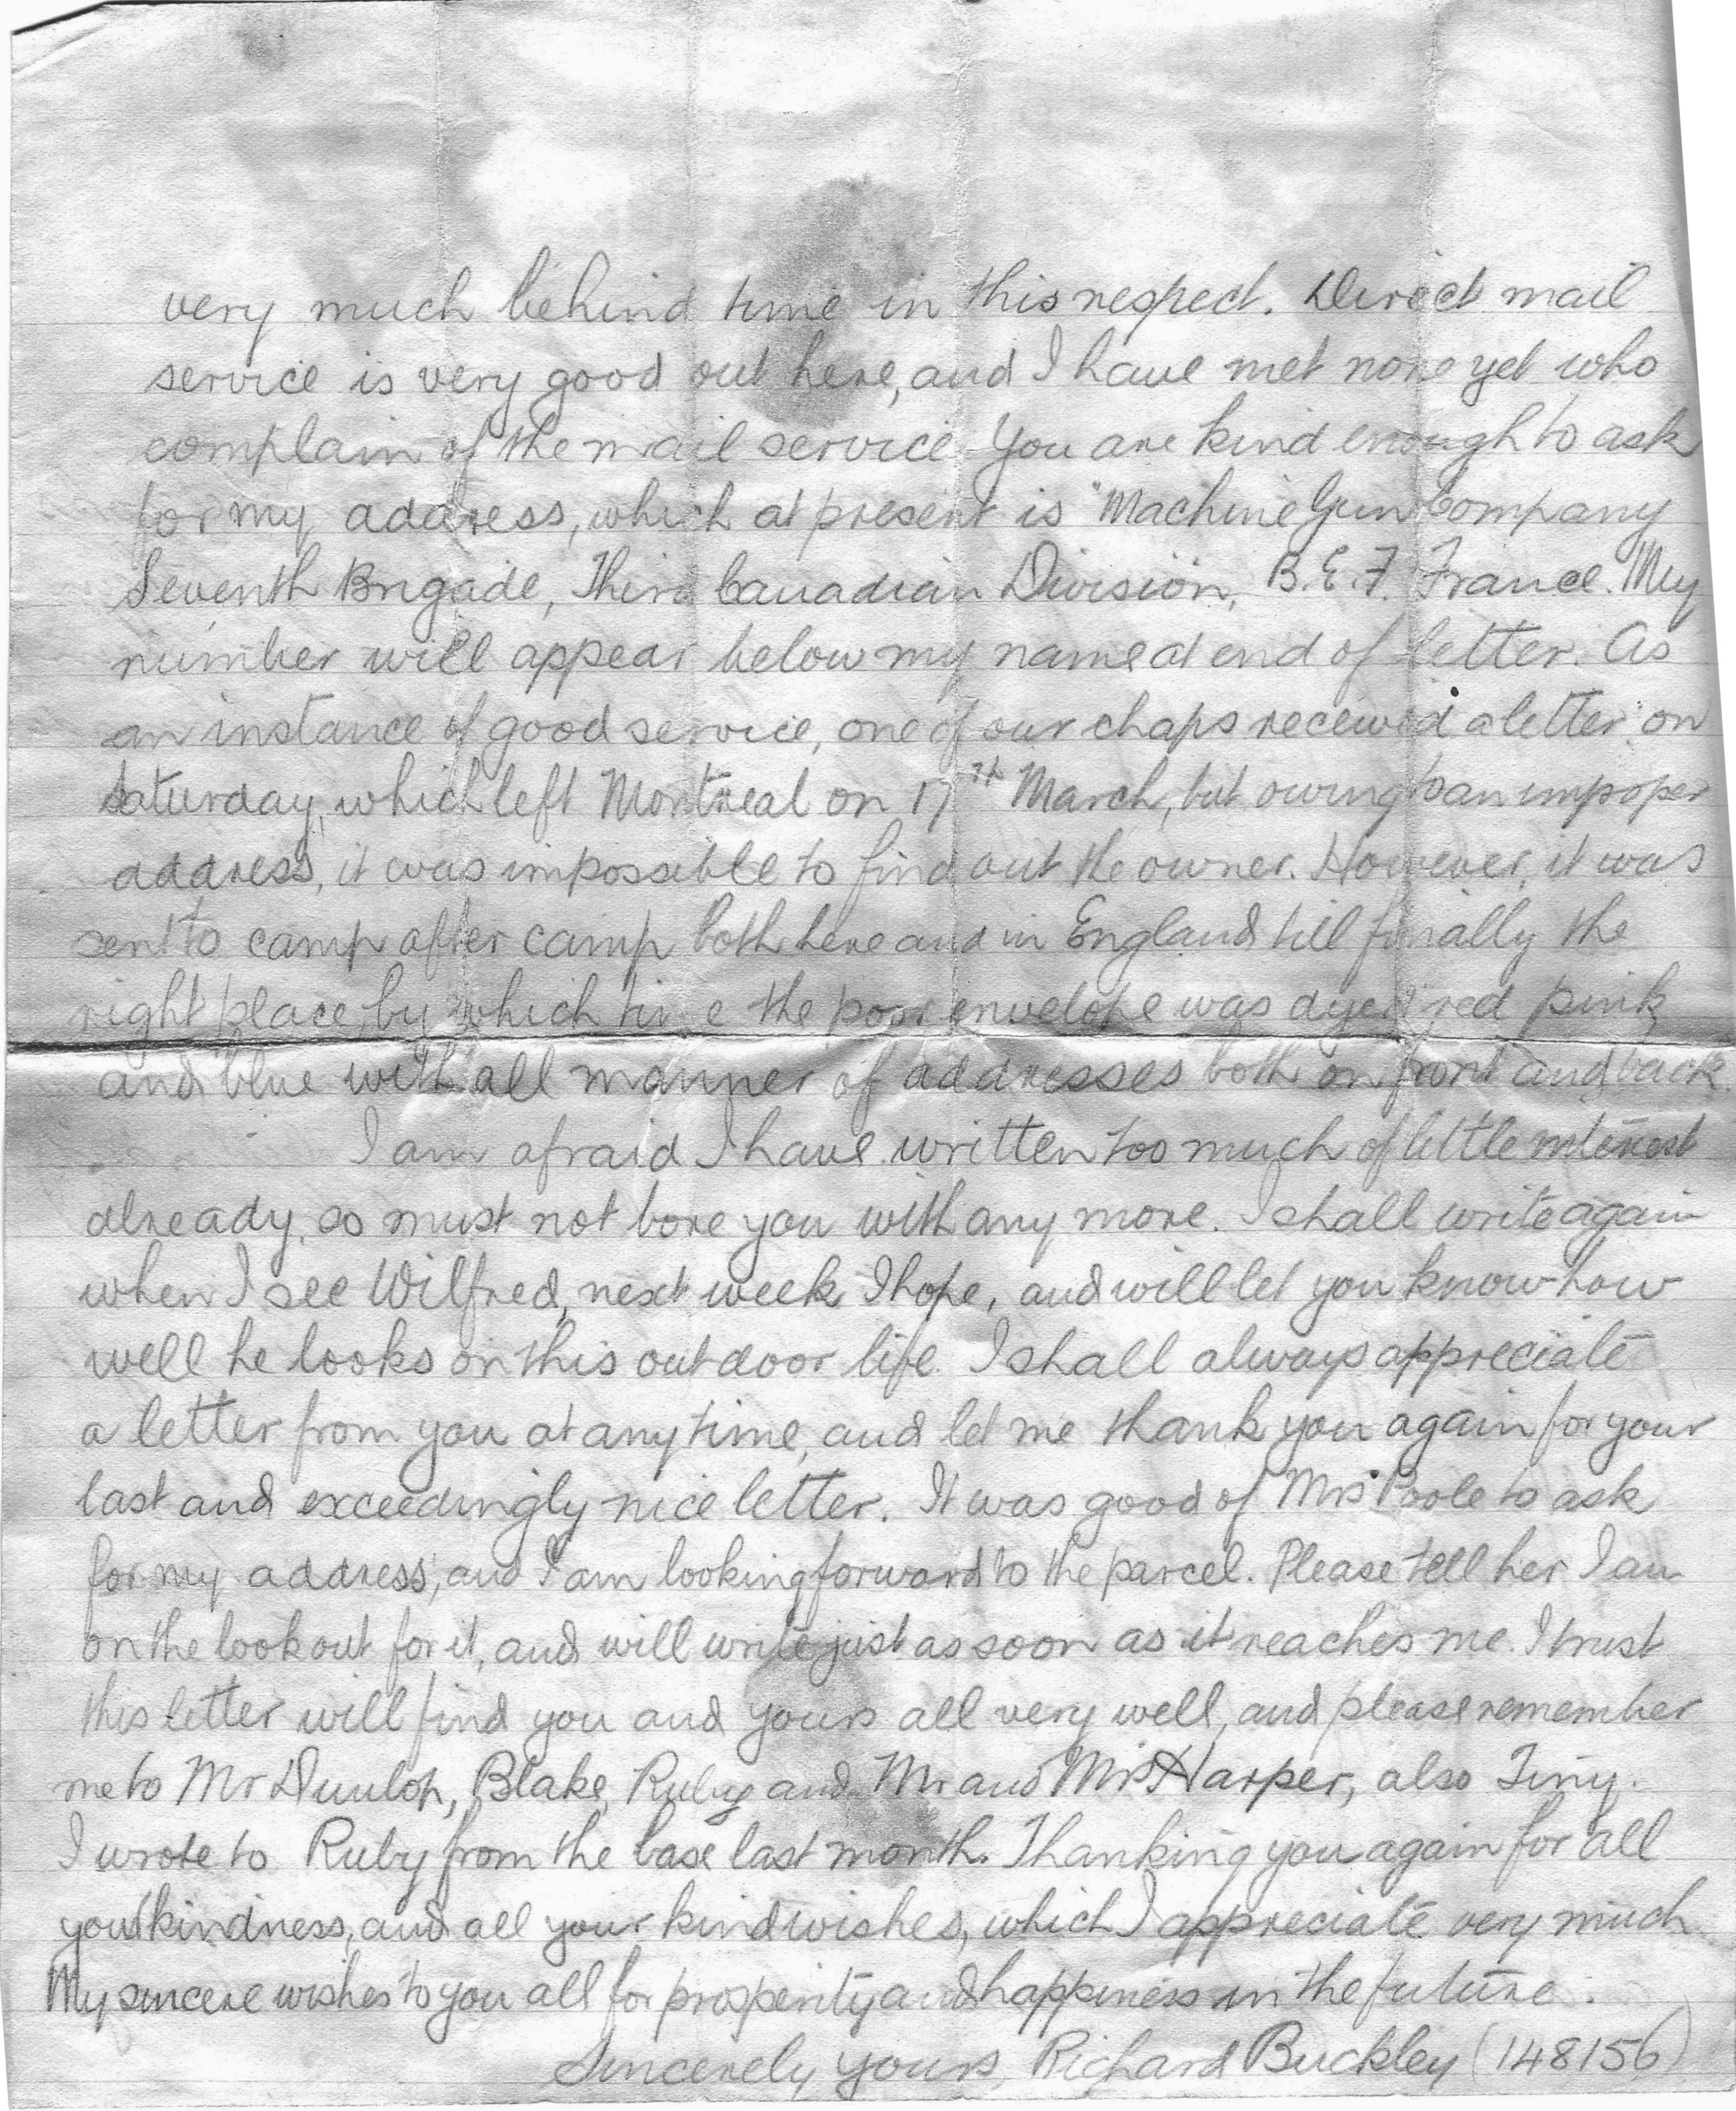 very much behind time in this respect. Direct mail
service is very good out here, and I have met none yet who
complain of the mail service. You are kind enough to ask
for my address, which at present is "Machine Gun Company
Seventh Brigade, Third Canadian Division, B.E.F. France. My
number will appear below my name at end of letter. As
an instance of good service, one of our chaps received a letter on
Saturday, which left Montreal on 17th March, but owing to an improper
address, it was impossible to find out the owner. However, it was
sent to camp after camp both here and in England till finally the
right place, by which time the poor envelope was dyed red pink
and blue with all manner of addresses both on front and back
I am afraid I have written too much of little interest
already, so must not bore you with any more. I shall write again
when I see Wilfred, next week I hope, and will let you know how
well he looks on this outdoor life. I shall always appreciate
a letter from you at any time, and let me thank you again for your
last and exceedingly nice letter. It was good of Mrs Poole to ask
for my address, and I am looking forward to the parcel. Please tell her I am
on the lookout for it, and will write just as soon as it reaches me. I trust
this letter will find you and yours all very well, and please remember
me to Mr Dunlop, Blake, Ruby and Mr and Mrs Harper, also Tiny.
I wrote to Ruby from the base last month. Thanking you again for all
your kindness, and all your kind wishes, which I appreciate very much
My sincere wishes to you all for prosperity and happiness in the future.
Sincerely yours, Richard Buckley (148156)